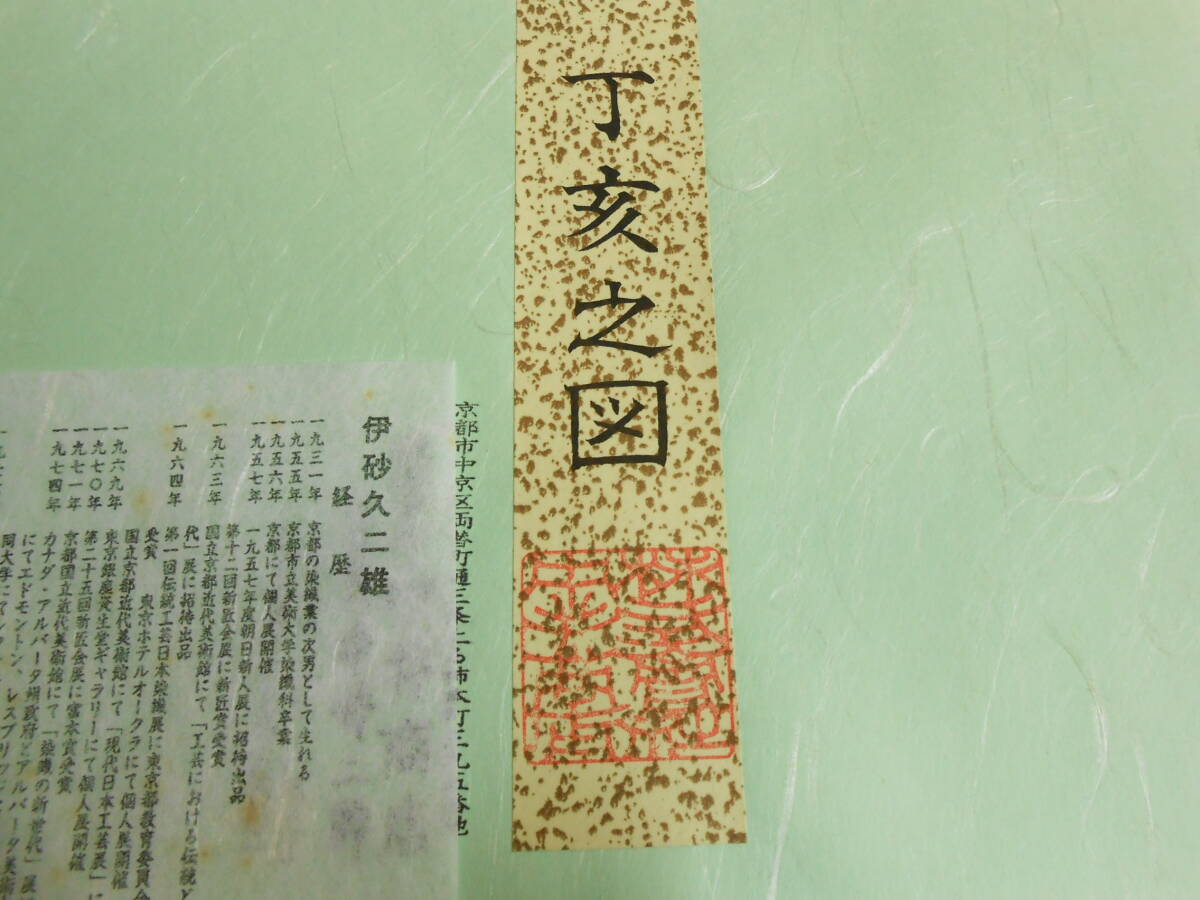 丁亥之図
京都市中京区両替町通三条上る柿本町三九五番地
伊砂久二雄
経歴
一九三一年 京都の染織業の次男として生れる
一九五五年 京都市立美術大学染織科卒業
一九五六年 京都にて個人展開催
一九五七年 一九五七年度朝日新人展に招待出品
第十二回新匠会展に新匠賞受賞
一九六三年 国立京都近代美術館にて「工芸における伝統と
代」展に招待出品
一九六四年 第一回伝統工芸日本染織展に東京都教育委員会
受賞 東京ホテルオークラにて個人展開催
国立京都近代美術館にて「現代日本工芸展」に
一九六九年 東京銀座資生堂ギャラリーにて個人展開催
一九七〇年 第二十五回新匠会展に富本賞受賞
一九七一年 京都国立近代美術館にて「染織の新世代」展
一九七四年 カナダ・アルバータ州政府とアルバータ美術
にてエドモントン、レスブリッジ